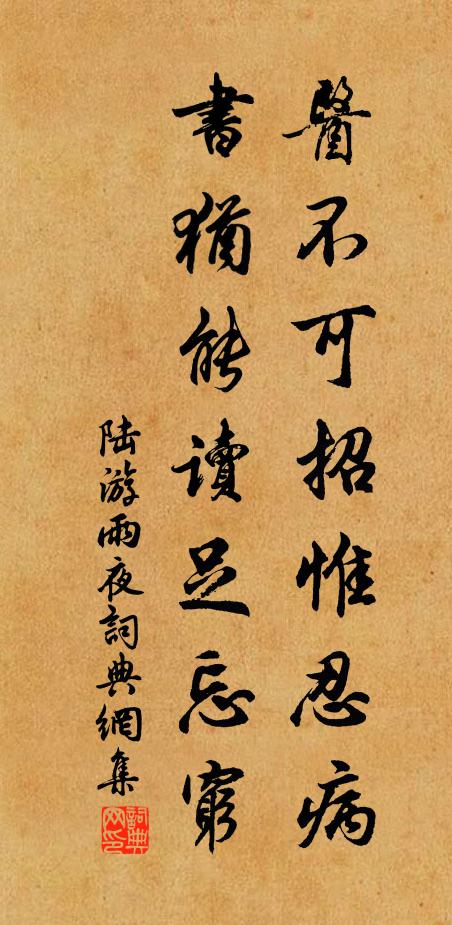 醫不可招惟忍病
書猶能讀足忘窮
陆游雨夜詞典網集
詞典网印